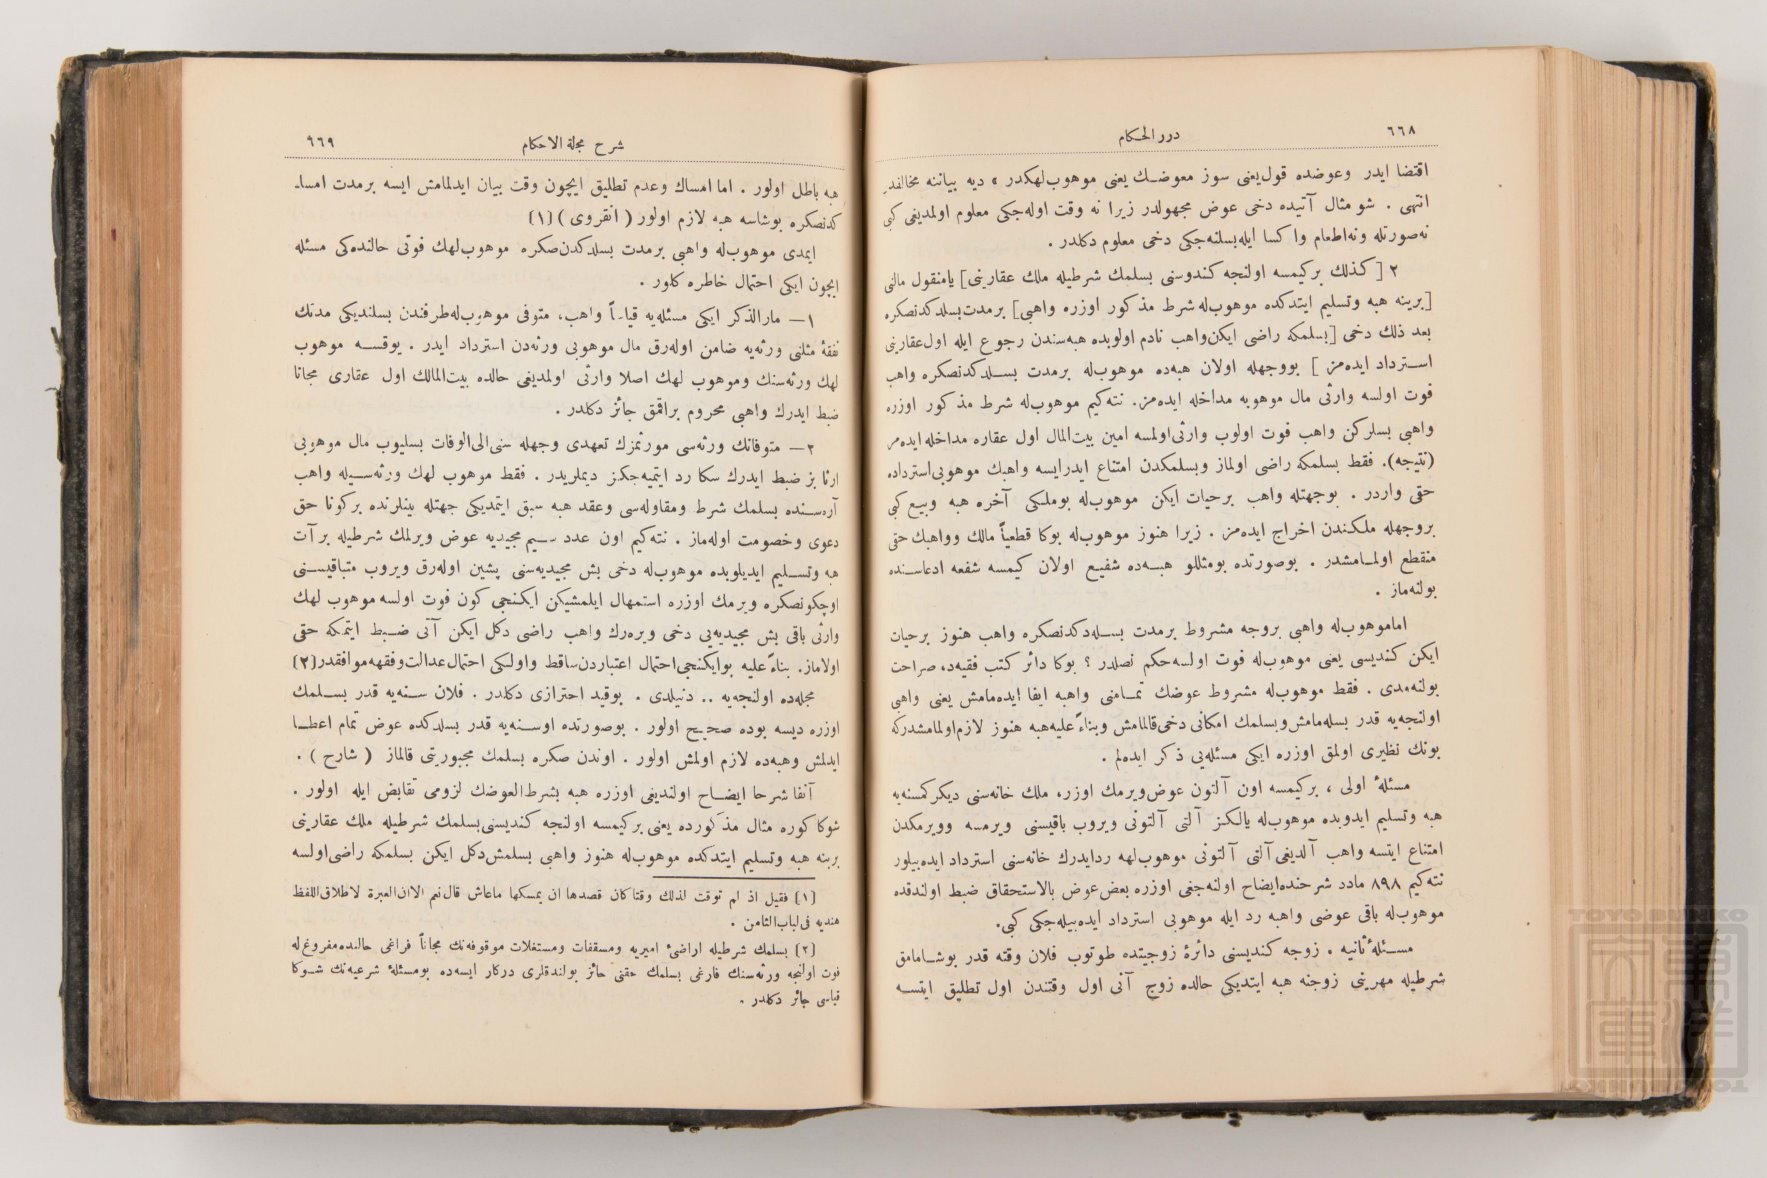 ٦٦٨
درر الحكام
اقتضا ايدر وعوضده قول يعنى سوز معوضك يعنى موهوب لهكدر » ديه بياننه مخالفدر
انتهى . شو مثال آتيده دخى عوض مجهولدر زيرا نه وقت اوله‌جكى معلوم اولمديغى كبى
نه‌صورتله ونه‌اطعام واكسا ايله‌بسلنه‌جكى دخى معلوم دكلدر .
٢ [ كذلك بركيمسه اولنجه كندوسنى بسلمك شرطيله ملك عقارينى ] يامنقول مالنى
[ برينه هبه وتسليم ايتدكده موهوب‌له شرط مذكور اوزره واهبى ] برمدت بسلدكدنصكره
بعد ذلك دخى [ بسلمكه راضى ايكن واهب نادم اولوبده هبه‌سندن رجوع ايله اول عقارينى
استرداد ايده‌مز ] بووجهله اولان هبه‌ده موهوب‌له برمدت بسلدكدنصكره واهب
فوت اولسه وارثى مال موهوبه مداخله ايده‌مز. نته‌كيم موهوب‌له شرط مذكور اوزره
واهبى بسلركن واهب فوت اولوب وارثى‌اولمسه امين بيت‌المال اول عقاره مداخله‌ايده‌مز
(نتيجه). فقط بسلمكه راضى اولماز وبسلمكدن امتناع ايدرايسه واهبك موهوبى‌استرداده
حقى واردر . بوجهتله واهب برحيات ايكن موهوب‌له بوملكى آخره هبه وبيع كبى
بروجهله ملكندن اخراج ايده‌مز . زيرا هنوز موهوب‌له بوكا قطعياً مالك وواهبك حقى
منقطع اولمامشدر . بوصورتده بومثللو هبه‌ده شفيع اولان كيمسه شفعه ادعاسنده
بولنه‌ماز .
اماموهوب‌له واهبى بروجه مشروط برمدت بسله‌دكدنصكره واهب هنوز برحيات
ايكن كنديسى يعنى موهوب‌له فوت اولسه‌حكم نصلدر ؟ بوكا دائر كتب فقيه‌ده صراحت
بولنه‌مدى . فقط موهوب‌له مشروط عوضك تمامنى واهبه ايفا ايده‌مامش يعنى واهبى
اولنجه‌يه قدر بسله‌مامش وبسلمك امكانى دخى‌قالمامش وبناءً عليه‌هبه هنوز لازم‌اولمامشدركه
بونك نظيرى اولمق اوزره ايكى مسئله‌يى ذكر ايده‌لم .
مسئلهٔ اولى ، بركيمسه اون آلتون عوض‌ويرمك اوزره ملك خانه‌سنى ديكركمسنه‌يه
هبه وتسليم ايدوبده موهوب‌له يالكز آلتى آلتونى ويروب باقيسنى ويرمسه وويرمكدن
امتناع ايتسه واهب آلديغى آلتى آلتونى موهوب‌لهه ردايدرك خانه‌سنى استرداد ايده‌بيلور
نته‌كيم ٨٩٨ مادده شرحنده‌ايضاح اولنه‌جغى اوزره بعض‌عوض بالاستحقاق ضبط اولندقده
موهوب‌له باقى عوضى واهبه رد ايله موهوبى استرداد ايده‌بيله‌جكى كبى.
مسئلهٔ ثانيه . زوجه كنديسنى دائرهٔ زوجيتده طوتوب فلان وقته قدر بوشامامق
شرطيله مهرينى زوجنه هبه ايتديكى حالده زوج آنى اول وقتندن اول تطليق ايتسه
٦٦٩
شرح مجلة الاحكام
هبه باطل اولور . اما امساك وعدم تطليق ايچون وقت بيان ايدلمامش ايسه برمدت امسا-
كدنصكره بوشاسه هبه لازم اولور ( انقروى ) (١)
ايمدى موهوب‌له واهبى برمدت بسلدكدن صكره موهوب‌لهك فوتى حالنده‌كى مسئله
ايچون ايكى احتمال خاطره كلور .
١— مارالذكر ايكى مسئله‌يه قياساً واهب، متوفى موهوب‌له‌طرفندن بسلنديكى مدتك
نفقهٔ مثلنى ورثه‌يه ضامن اوله‌رق مال موهوبى ورثه‌دن استرداد ايدر . يوقسه موهوب
لهك ورثه‌سنك وموهوب لهك اصلا وارثى اولمديغى حالده بيت‌المالك اول عقارى مجانا
ضبط ايدرك واهبى محروم براقمق جائز دكلدر .
٢— متوفانك ورثه‌سى مورثمزك تعهدى وجهله سنى‌الى‌الوفات بسليوب مال موهوبى
ارثا بز ضبط ايدرك سكا رد ايتميه‌جكز ديملريدر . فقط موهوب لهك ورثه‌سيله واهب
آره‌سنده بسلمك شرط ومقاوله‌سى وعقد هبه سبق ايتمديكى جهتله بينلرنده بركونا حق
دعوى وخصومت اوله‌ماز . نته‌كيم اون عدد سيم مجيديه عوض ويرلمك شرطيله برآت
هبه وتسليم ايديلوبده موهوب‌له دخى بش مجيديه‌سنى پشين اوله‌رق ويروب متباقيسنى
اوچ‌كونصكره ويرمك اوزره استمهال ايلمشيكن ايكنجى كون فوت اولسه موهوب لهك
وارثى باقى بش مجيديه‌يى دخى ويره‌رك واهب راضى دكل ايكن آتى ضبط ايتمكه حقى
اولاماز. بناءً عليه بوايكنجى‌احتمال اعتباردن‌ساقط واولكى احتمال‌عدالت‌وفقهه‌موافقدر(٢)
مجله‌ده اولنجه‌يه .. دنيلدى . بوقيد احترازى دكلدر . فلان سنه‌يه قدر بسلمك
اوزره ديسه بوده صحيح اولور . بوصورتده اوسنه‌يه قدر بسلدكده عوض تمام اعطا
ايدلمش وهبه‌ده لازم اولمش اولور . اوندن صكره بسلمك مجبوريتى قالماز ( شارح ) .
آنفا شرحا ايضاح اولنديغى اوزره هبه بشرط‌العوضك لزومى تقابض ايله اولور .
شوكا كوره مثال مذكورده يعنى بركيمسه اولنجه كنديسنى‌بسلمك شرطيله ملك عقارينى
برينه هبه وتسليم ايتدكده موهوب‌له هنوز واهبى بسلمش‌دكل ايكن بسلمكه راضى‌اولسه
(١) فقيل اذ ام توقت لذلك وقتا كان قصدها ان يمسكها ماعاش قال نعم الاان‌العبرة لاطلاق‌اللفظ
هنديه فى‌لباب‌الثامن .
(٢) بسلمك شرطيله اراضئ اميريه ومسقفات ومستغلات موقوفه‌نك مجاناً فراغى حالنده‌مفروغ‌له
فوت اولنجه ورثه‌سنك فارغى بسلمك حقنى حائز بولندقلرى دركار ايسه‌ده بومسئلهٔ شرعيه‌نك شوكا
قياسى جائز دكلدر .
TOYO BUNKO